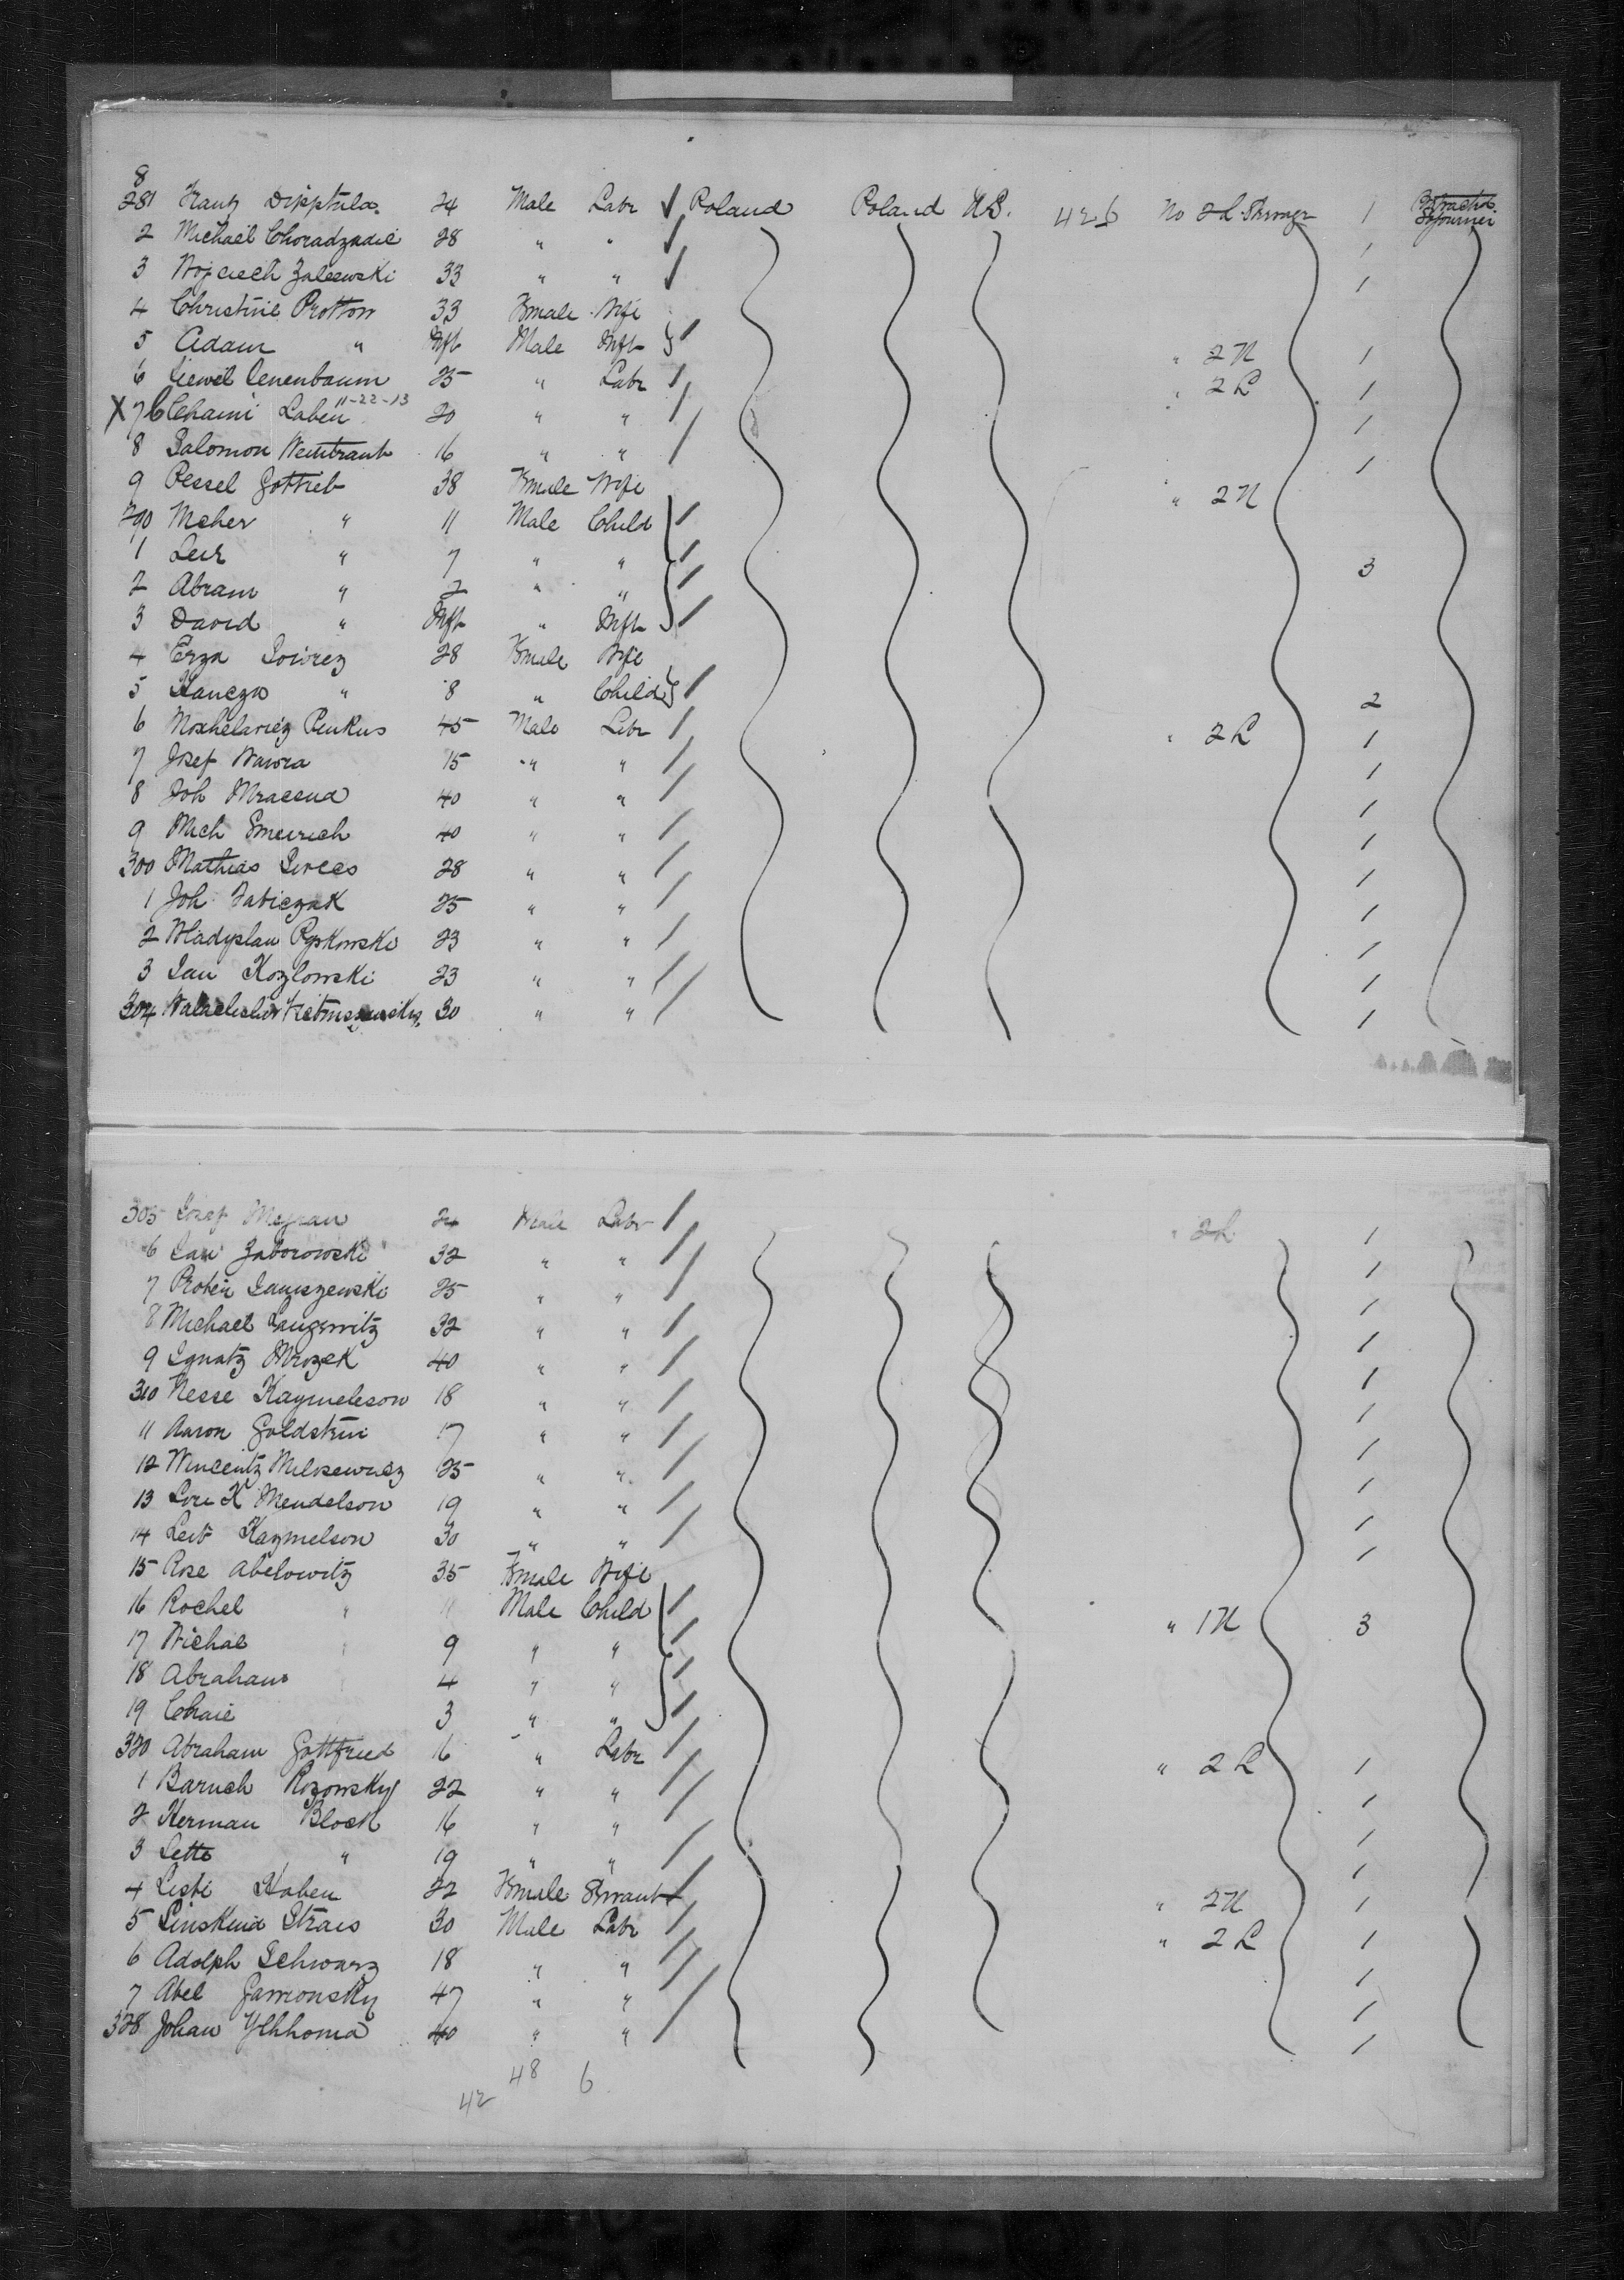 8
281 Frantz Dipptula 24 Male Labr Poland Poland U.S. 426 No 2 L Steerage 1 Protracted Sojourner
2 Michael Choradzadie 28 " " 1
3 Wojciech Zalewski 33 " " 1
4 Christine Protton 33 Female Wife
5 Adam " Inft Male Inft " 2 U 1
6 Liewel Cenenbaum 25 " Labr " 2 L 1
X 7 Chaim Laben 11-22-13 20 " " 1
8 Salomon Weintraub 16 " " 1
9 Pessel Gottlieb 38 Female Wife " 2 U
290 Meher " 11 Male Child
1 Leib " 7 " " 3
2 Abram " 2 " "
3 David " Inft " Inft
4 Erza 28 Female Wife
5 Hancza " 8 " Child 2
6 Penkus 45 Male Labr " 2 L 1
7 Josef Nawra 15 " " 1
8 Joh 40 " " 1
9 Mich Emeirich 40 " " 1
300 Mathias 28 " " 1
1 Joh Fabiczak 25 " " 1
2 Wladyslaw Rypkowski 23 " " 1
3 Jan Kozlowski 23 " " 1
304 30 " " 1
305 Josef Mejran 24 Male Labr " 2 L 1
6 Jan Zaborowski 32 " " 1
7 Januszewski 25 " " 1
8 Michael Langewitz 32 " " 1
9 Ignatz Mrozek 40 " " 1
310 Nesse Kaymeleson 18 " " 1
11 Aaron Goldstein 17 " " 1
12 Wincentz Milosewicz 25 " " 1
13 K Mendelson 19 " " 1
14 Leib Kazmelson 30 " " 1
15 Rose Abelowitz 35 Female Wife
16 Rochel " 11 Male Child " 1 U 3
17 Michal " 9 " "
18 Abraham " 4 " "
19 Chaie 3 " "
320 Abraham Gottfried 16 " Labr " 2 L 1
1 Baruch Rozowsky 22 " " 1
2 Herman Block 16 " " 1
3 Lette " 19 " " 1
4 Liebe Haben 22 Female Servant " 2 U 1
5 Straus 30 Male Labr " 2 L 1
6 Adolph Schwarz 18 " " 1
7 Abel Garmonsky 47 " " 1
328 Johan 40 " " 1
48 6
42